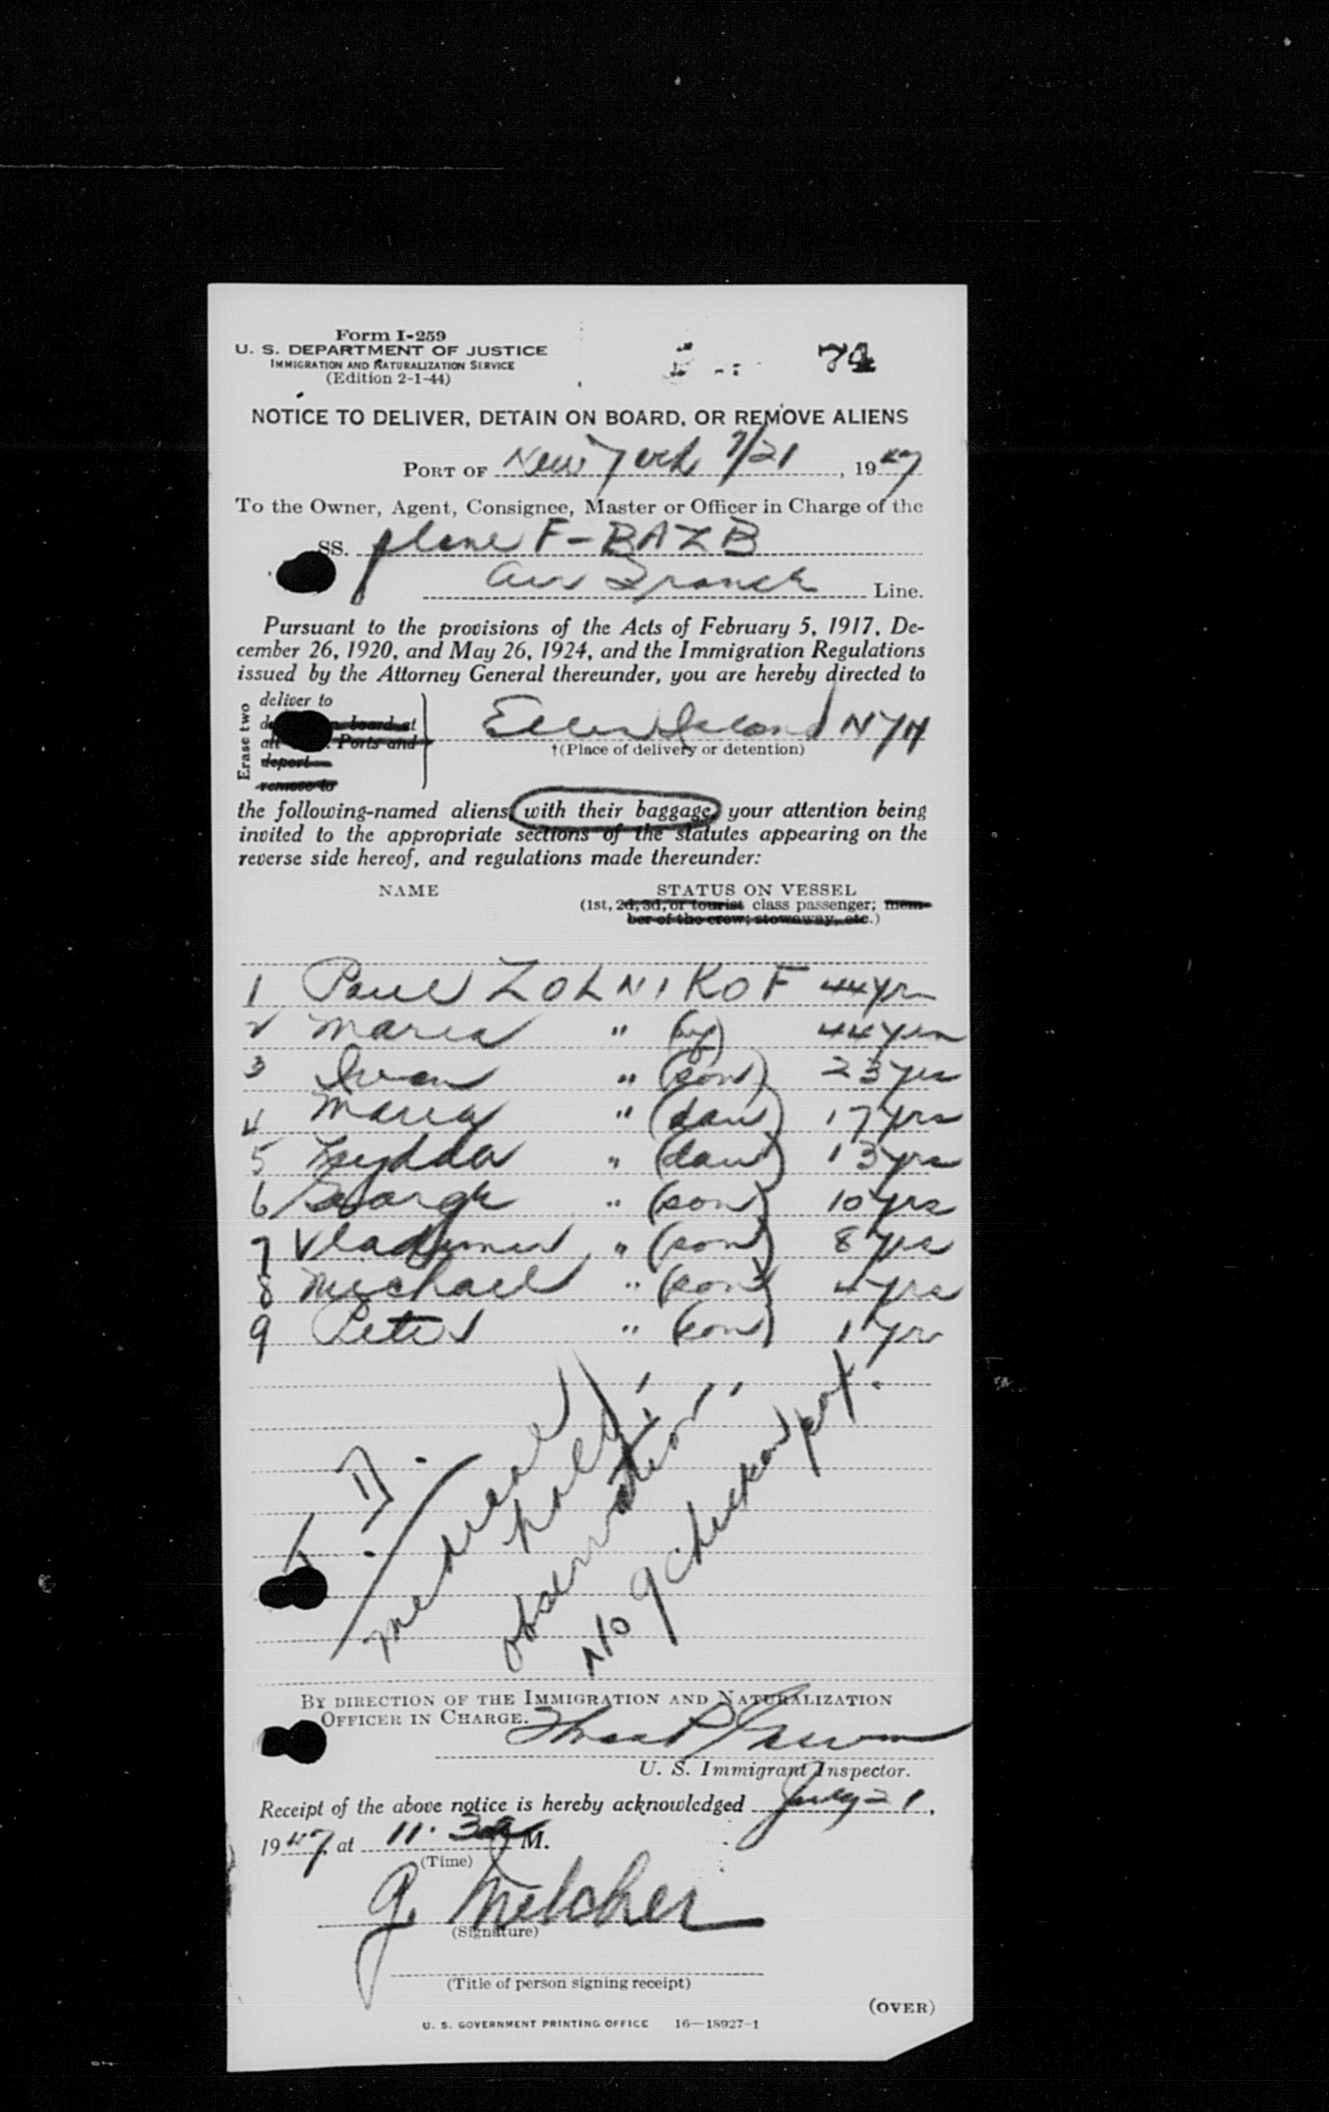 Form I-259
U. S. DEPARTMENT OF JUSTICE
IMMIGRATION AND NATURALIZATION SERVICE
(Edition 2-1-44)
74
NOTICE TO DELIVER, DETAIN ON BOARD, OR REMOVE ALIENS
PORT OF New York 7/21, 1947
To the Owner, Agent, Consignee, Master or Officer in Charge of the
SS. plane F-BAZB
Air France Line.
Pursuant to the provisions of the Acts of February 5, 1917, De-
cember 26, 1920, and May 26, 1924, and the Immigration Regulations
issued by the Attorney General thereunder, you are hereby directed to
Erase two
deliver to
board at
Ports and
deport
remove to
Ellis Island NYH
†(Place of delivery or detention)
the following-named aliens, with their baggage, your attention being
invited to the appropriate sections of the statutes appearing on the
reverse side hereof, and regulations made thereunder:
NAME STATUS ON VESSEL
(1st, 2d, 3d, or tourist class passenger; mem-
ber of the crew; stowaway, etc.)
1 Paul ZOLNIKOF 44 yrs
2 Maria " (wf) 44 yrs
3 Ivan " (son) 23 yrs
4 Maria " (dau) 17 yrs
5 Lydda " (dau) 13 yrs
6 George " (son) 10 yrs
7 Vladimir " (son) 8 yrs
8 Michael " (son) 4 yrs
9 Peter " (son) 1 yr
T. D.
medical
hold !
observation !
No 9 chickenpox!
BY DIRECTION OF THE IMMIGRATION AND NATURALIZATION
OFFICER IN CHARGE.
U. S. Immigrant Inspector.
Receipt of the above notice is hereby acknowledged July 21,
1947, at 11:30 a M.
(Time)
G. Melcher
(Signature)
(Title of person signing receipt)
(OVER)
U. S. GOVERNMENT PRINTING OFFICE 16—18927-1